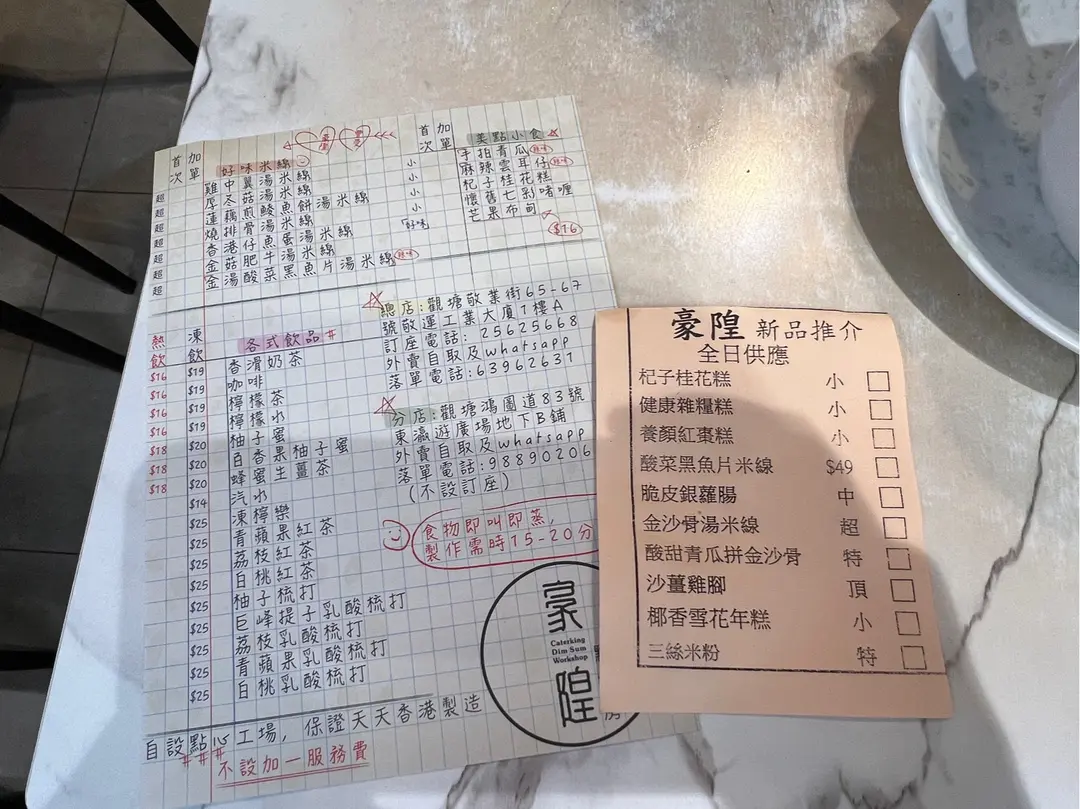 首次 加單 好味米線
超 雞中翼湯米線
超 厚冬菇湯米線
超 蓮藕煎鯪魚餅湯米線
超 燒排骨湯米線
超 香港仔魚蛋湯米線
超 金菇肥牛湯米線
超 金湯酸菜黑魚片湯米線 辣味
首次 加單 美點小食
小 手拍青瓜 辣味
小 麻辣雲耳仔 辣味
小 杞子桂花糕
小 懷舊七彩啫喱
「好味」 芒果布甸
$16
熱飲 凍飲 各式飲品
$16 $19 香滑奶茶
$16 $19 咖啡
$16 $19 檸檬茶
$16 $19 檸檬水
$18 $20 柚子蜜
$18 $20 百香果柚子蜜
$18 $20 蜂蜜生薑茶
$14 汽水
$25 凍檸樂
$25 青蘋果紅茶
$25 荔枝紅茶
$25 白桃紅茶
$25 柚子梳打
$25 巨峰提子乳酸梳打
$25 荔枝乳酸梳打
$25 青蘋果乳酸梳打
$25 白桃乳酸梳打
總店:觀塘敬業街65-67
號敬運工業大廈1樓A
訂座電話:25625668
外賣自取及whatsapp
落單電話:63962631
分店:觀塘鴻圖道83號
東瀛遊廣場地下B鋪
外賣自取及whatsapp
落單電話:98890206
(不設訂座)
食物即叫即蒸,
製作需時15-20分
豪隍
Caterking
Dim Sum
Workshop
自設點心工場,保證天天香港製造
不設加一服務費
豪隍 新品推介
全日供應
杞子桂花糕 小
健康雜糧糕 小
養顏紅棗糕 小
酸菜黑魚片米線 $49
脆皮銀蘿腸 中
金沙骨湯米線 超
酸甜青瓜拼金沙骨 特
沙薑雞腳 頂
椰香雪花年糕 小
三絲米粉 特